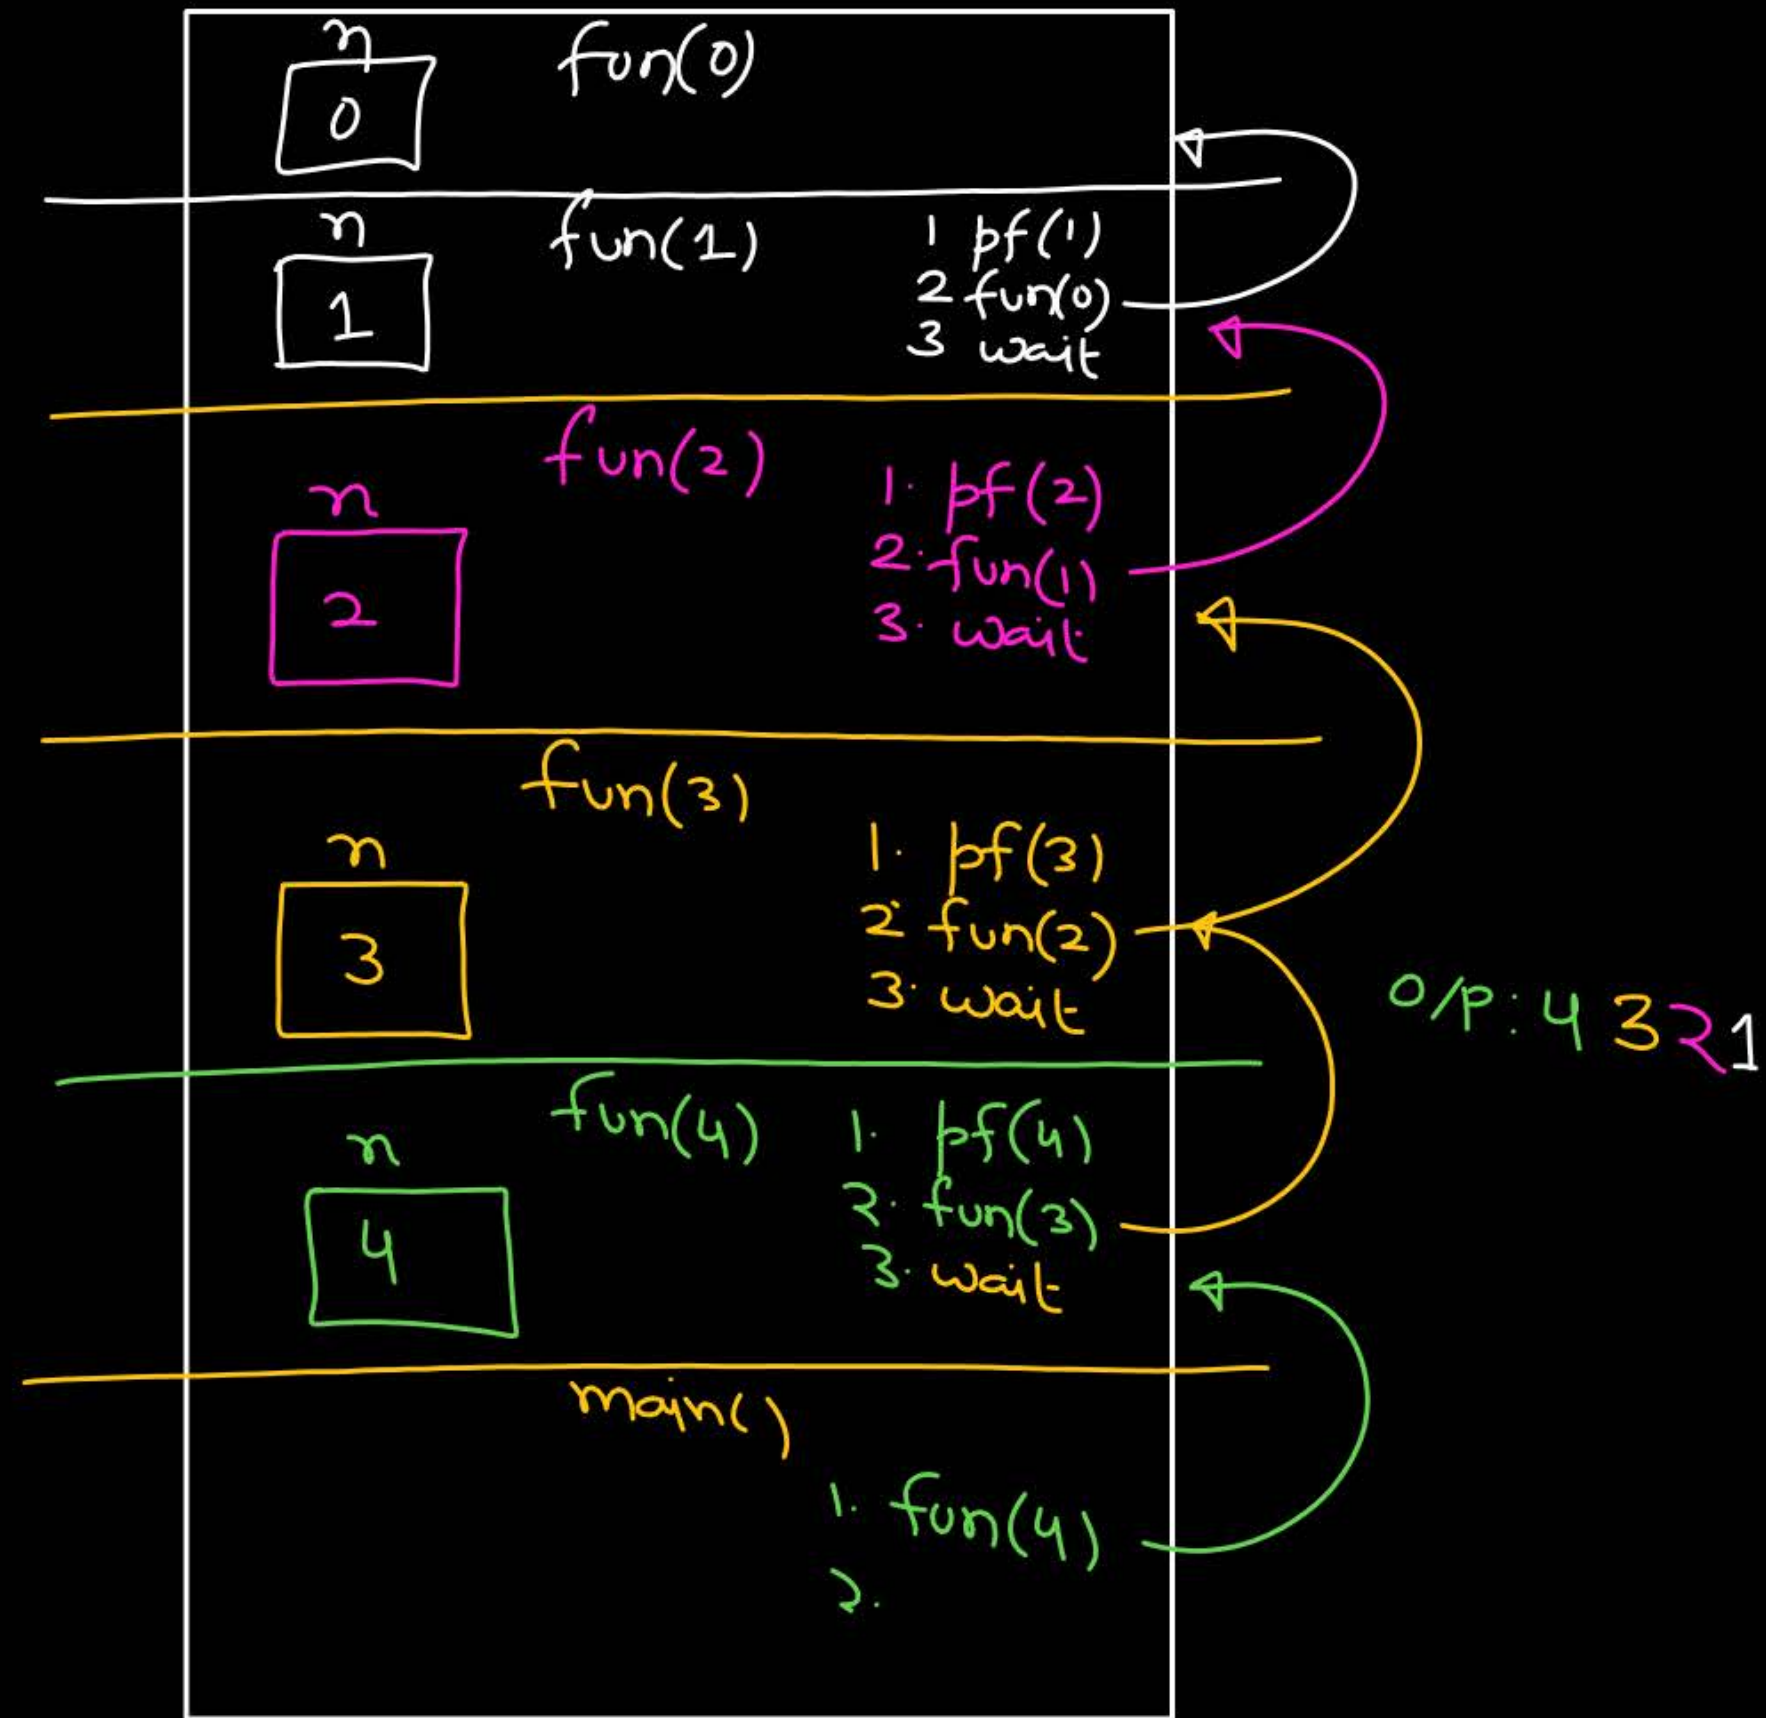 n fun(0)
0
n fun(1) 1 pf(1)
1 2 fun(0)
3 wait
fun(2)
n 1. pf(2)
2. fun(1)
2 3. wait
fun(3)
n 1. pf(3)
2. fun(2)
3 3. wait
O/P: 4 3 2 1
fun(4) 1. pf(4)
n 2. fun(3)
4 3. wait
main()
1. fun(4)
2.